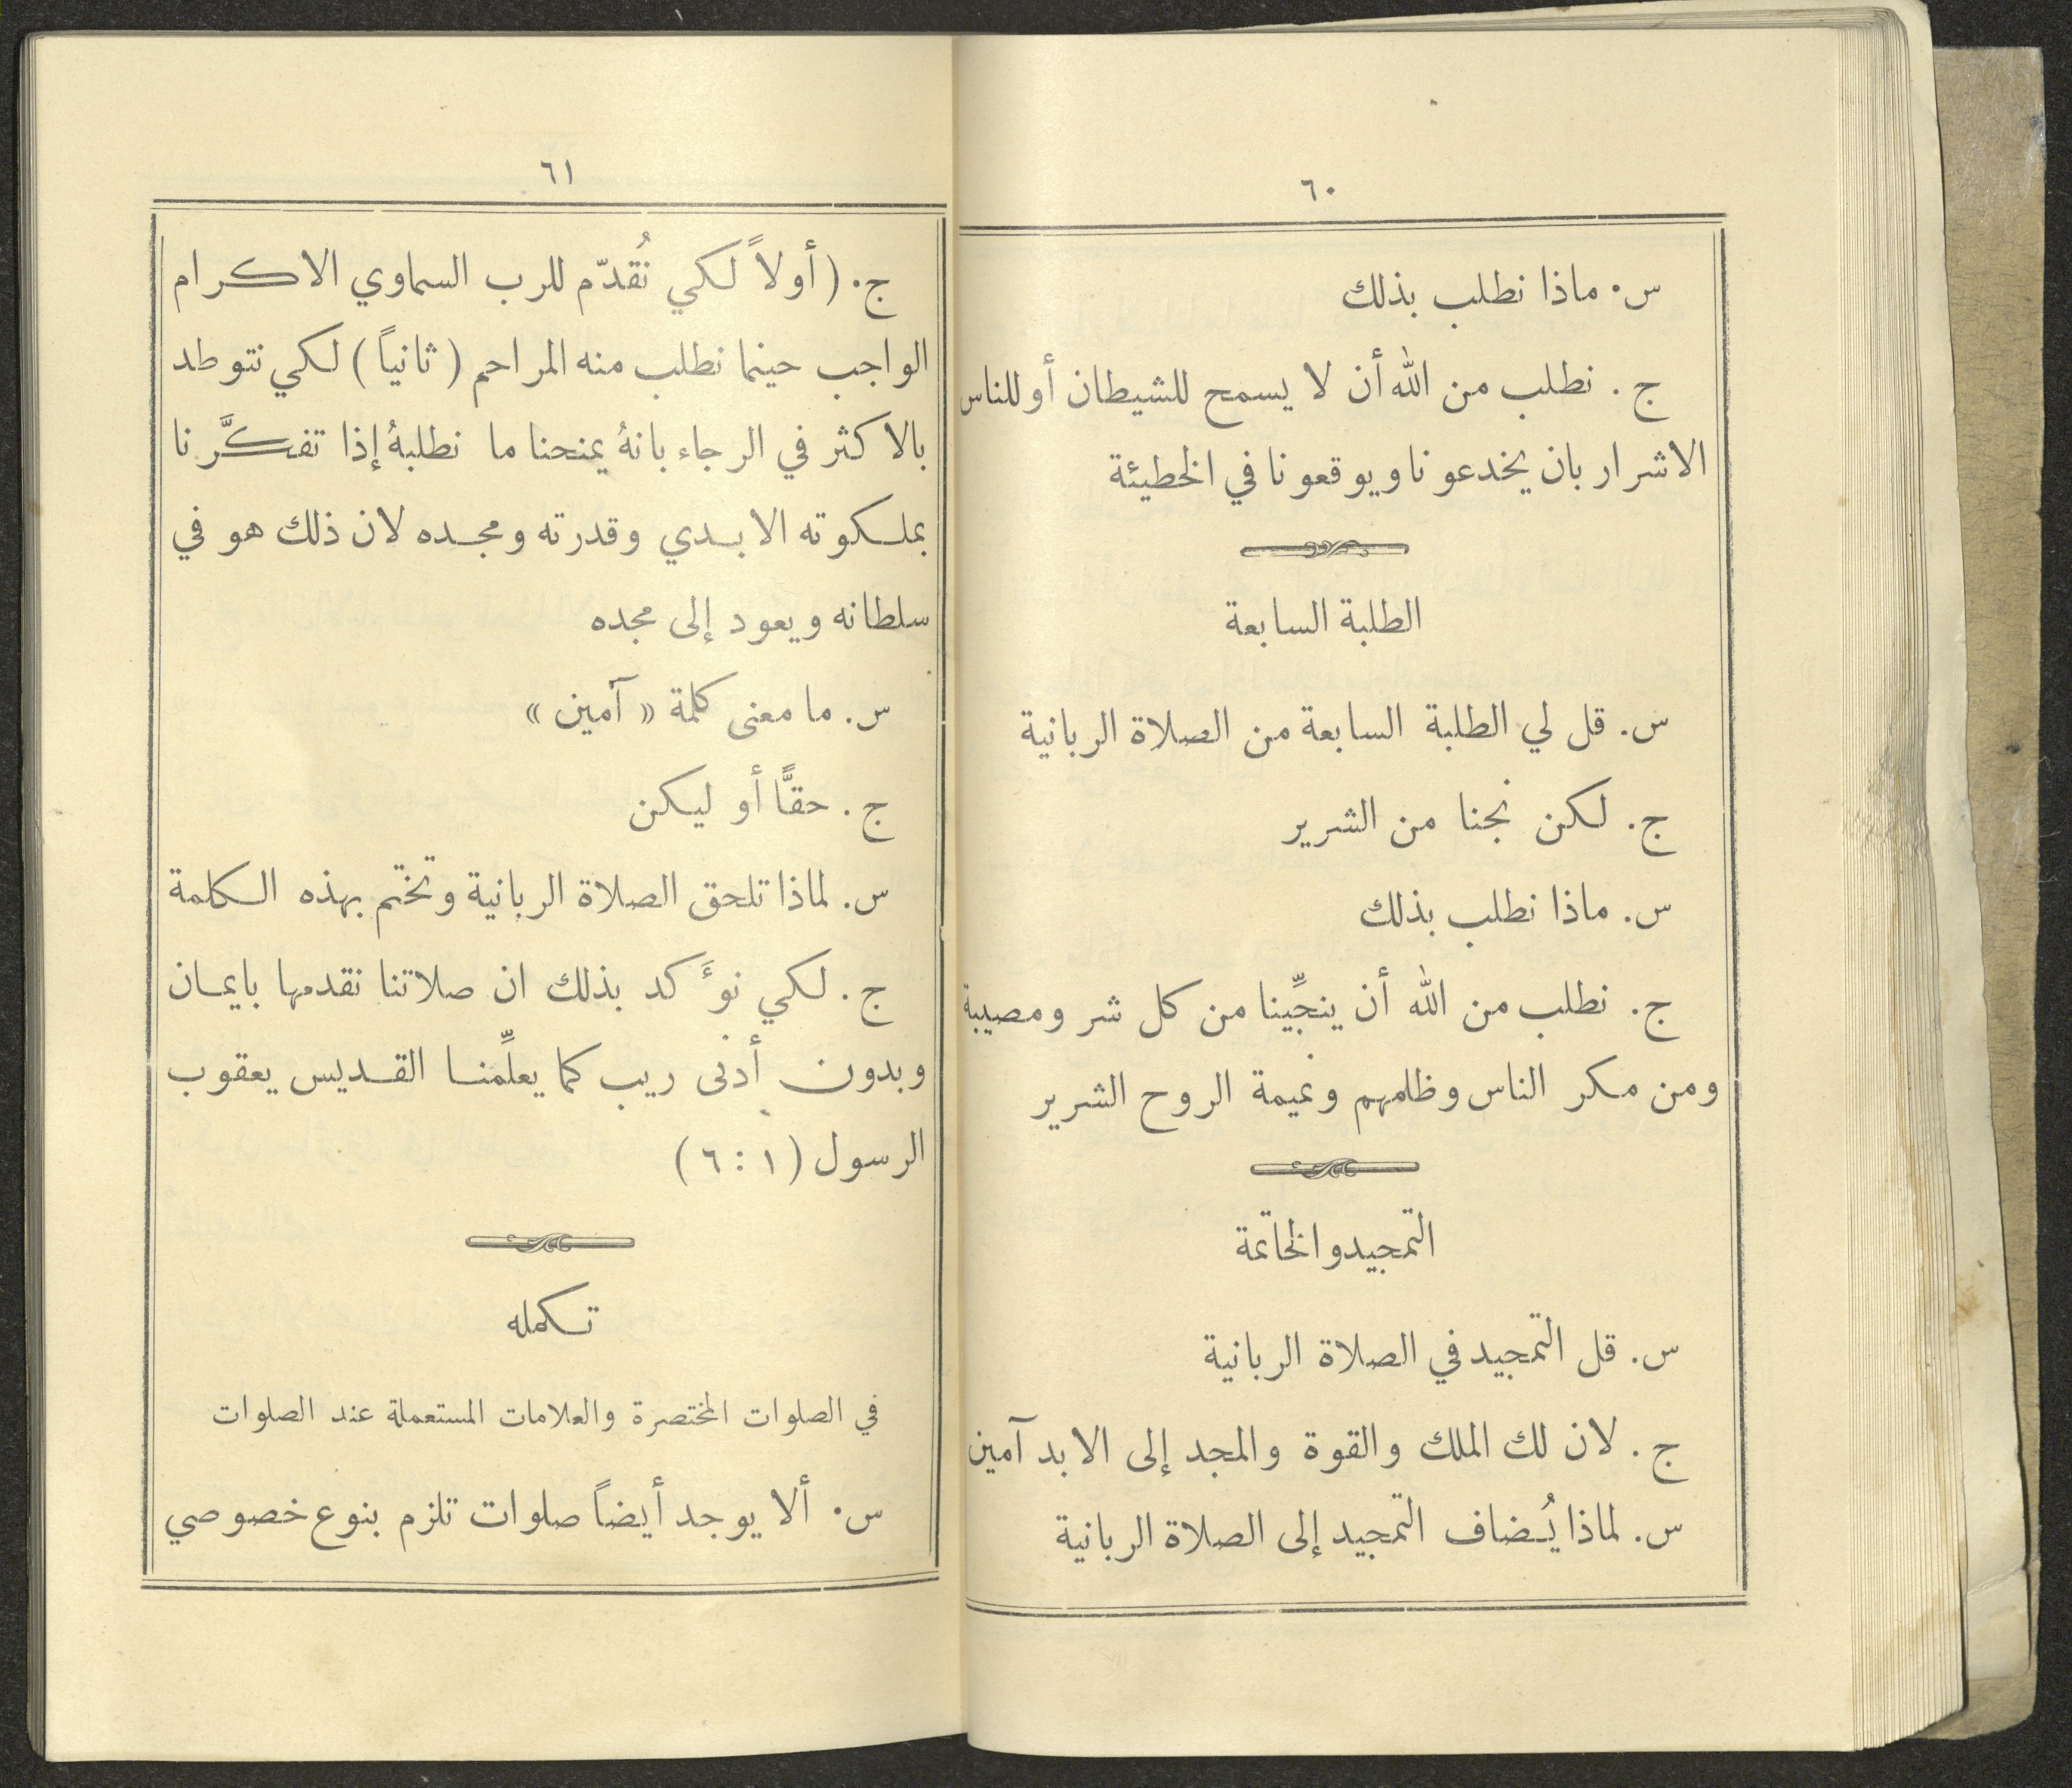 ٦٠
س. ماذا نطلب بذلك
ج. نطلب من الله أن لا يسمح للشيطان أو للناس
الاشرار بان يخدعونا ويوقعونا في الخطيئة
الطلبة السابعة
س. قل لي الطلبة السابعة من الصلاة الربانية
ج. لكن نجنا من الشرير
س. ماذا نطلب بذلك
ج. نطلب من الله أن ينجِّينا من كل شر ومصيبة
ومن مكر الناس وظلمهم ونميمة الروح الشرير
التمجيد والخاتمة
س. قل التمجيد في الصلاة الربانية
ج. لان لك الملك والقوة والمجد إلى الابد آمين
س. لماذا يُضاف التمجيد إلى الصلاة الربانية
٦١
ج. (أولاً لكي نُقدّم للرب السماوي الاكرام
الواجب حينما نطلب منه المراحم (ثانياً) لكي نتوطد
بالاكثر في الرجاء بانهُ يمنحنا ما نطلبهُ إذا تفكَّرنا
بملكوته الابدي وقدرته ومجده لان ذلك هو في
سلطانه ويعود إلى مجده
س. ما معنى كلمة «آمين»
ج. حقًّا أو ليكن
س. لماذا تلحق الصلاة الربانية وتختم بهذه الكلمة
ج. لكي نوَّكد بذلك ان صلاتنا نقدمها بايمان
وبدون أدنى ريب كما يعلِّمنا القديس يعقوب
الرسول (١ : ٦)
تكمله
في الصلوات المختصرة والعلامات المستعملة عند الصلوات
س. ألا يوجد أيضاً صلوات تلزم بنوع خصوصي